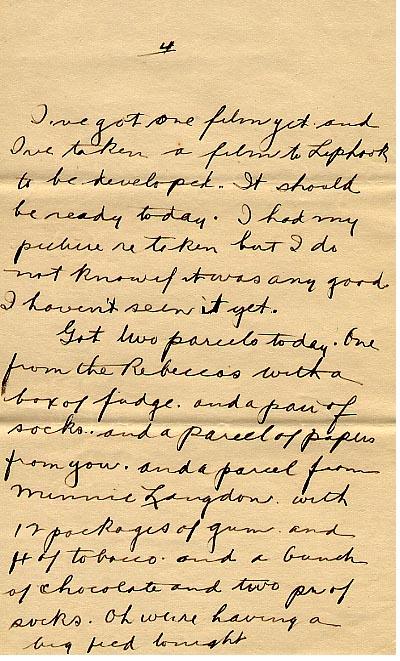 4
I.ve got one film yet. and
I've taken a film to Liphook
to be developed. It should
be ready today. I had my
picture re taken but I do
not know if it was any good.
I haven't seen it yet.
Got two parcels today. One
from the Rebecca's with a
box of fudge. and a pair of
socks. and a parcel of papers
from you. and a parcel from
Minnie Langdon. with
12 packages of gum. and
4 of tobacco. and a bunch
of chocolate and two pr of
socks. Oh we're having a
big feed tonight